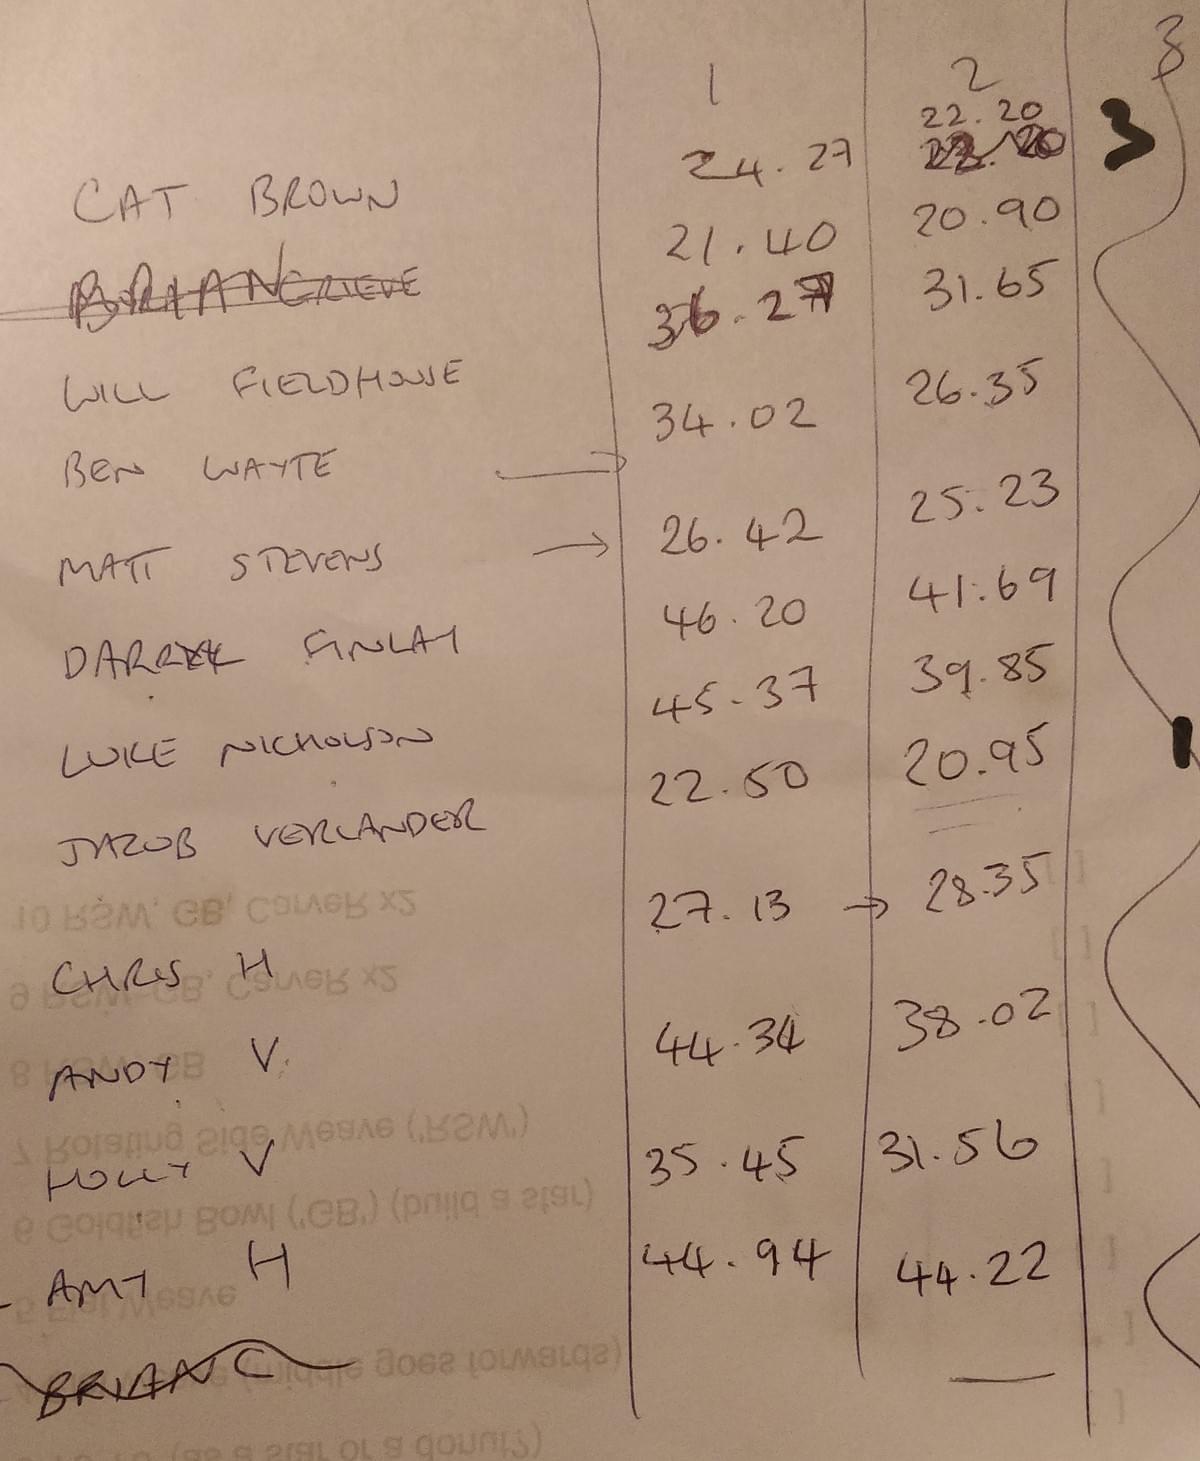 1 2 3
22.20
CAT BROWN 24.27 22.20 3
BRIAN GRIEVE 21.40 20.90
WILL FIELDHOUSE 36.27 31.65
BEN WAYTE → 34.02 26.35
MATT STEVENS → 26.42 25.23
FINLAY 46.20 41.69
LUKE NICHOLSON 45.37 39.85
JACOB VERLANDER 22.50 20.95 1
CHRIS H 27.13 → 28.35
ANDY V 44.34 38.02
HOLLY V 35.45 31.56
AMY H 44.94 44.22
BRIAN C
10 RSW, GB, CarveR x2 [ ]
9 RSW, GB, CarveR x2 [ ]
8 RSW, GB [ ]
7 Rotating Side Weave ('RSW') [ ]
6 Goldfish Bowl ('GB') (build a star) [ ]
5 Flat Weave [ ]
(middle goes forwards) [ ]
(as a star or a donut?) [ ]